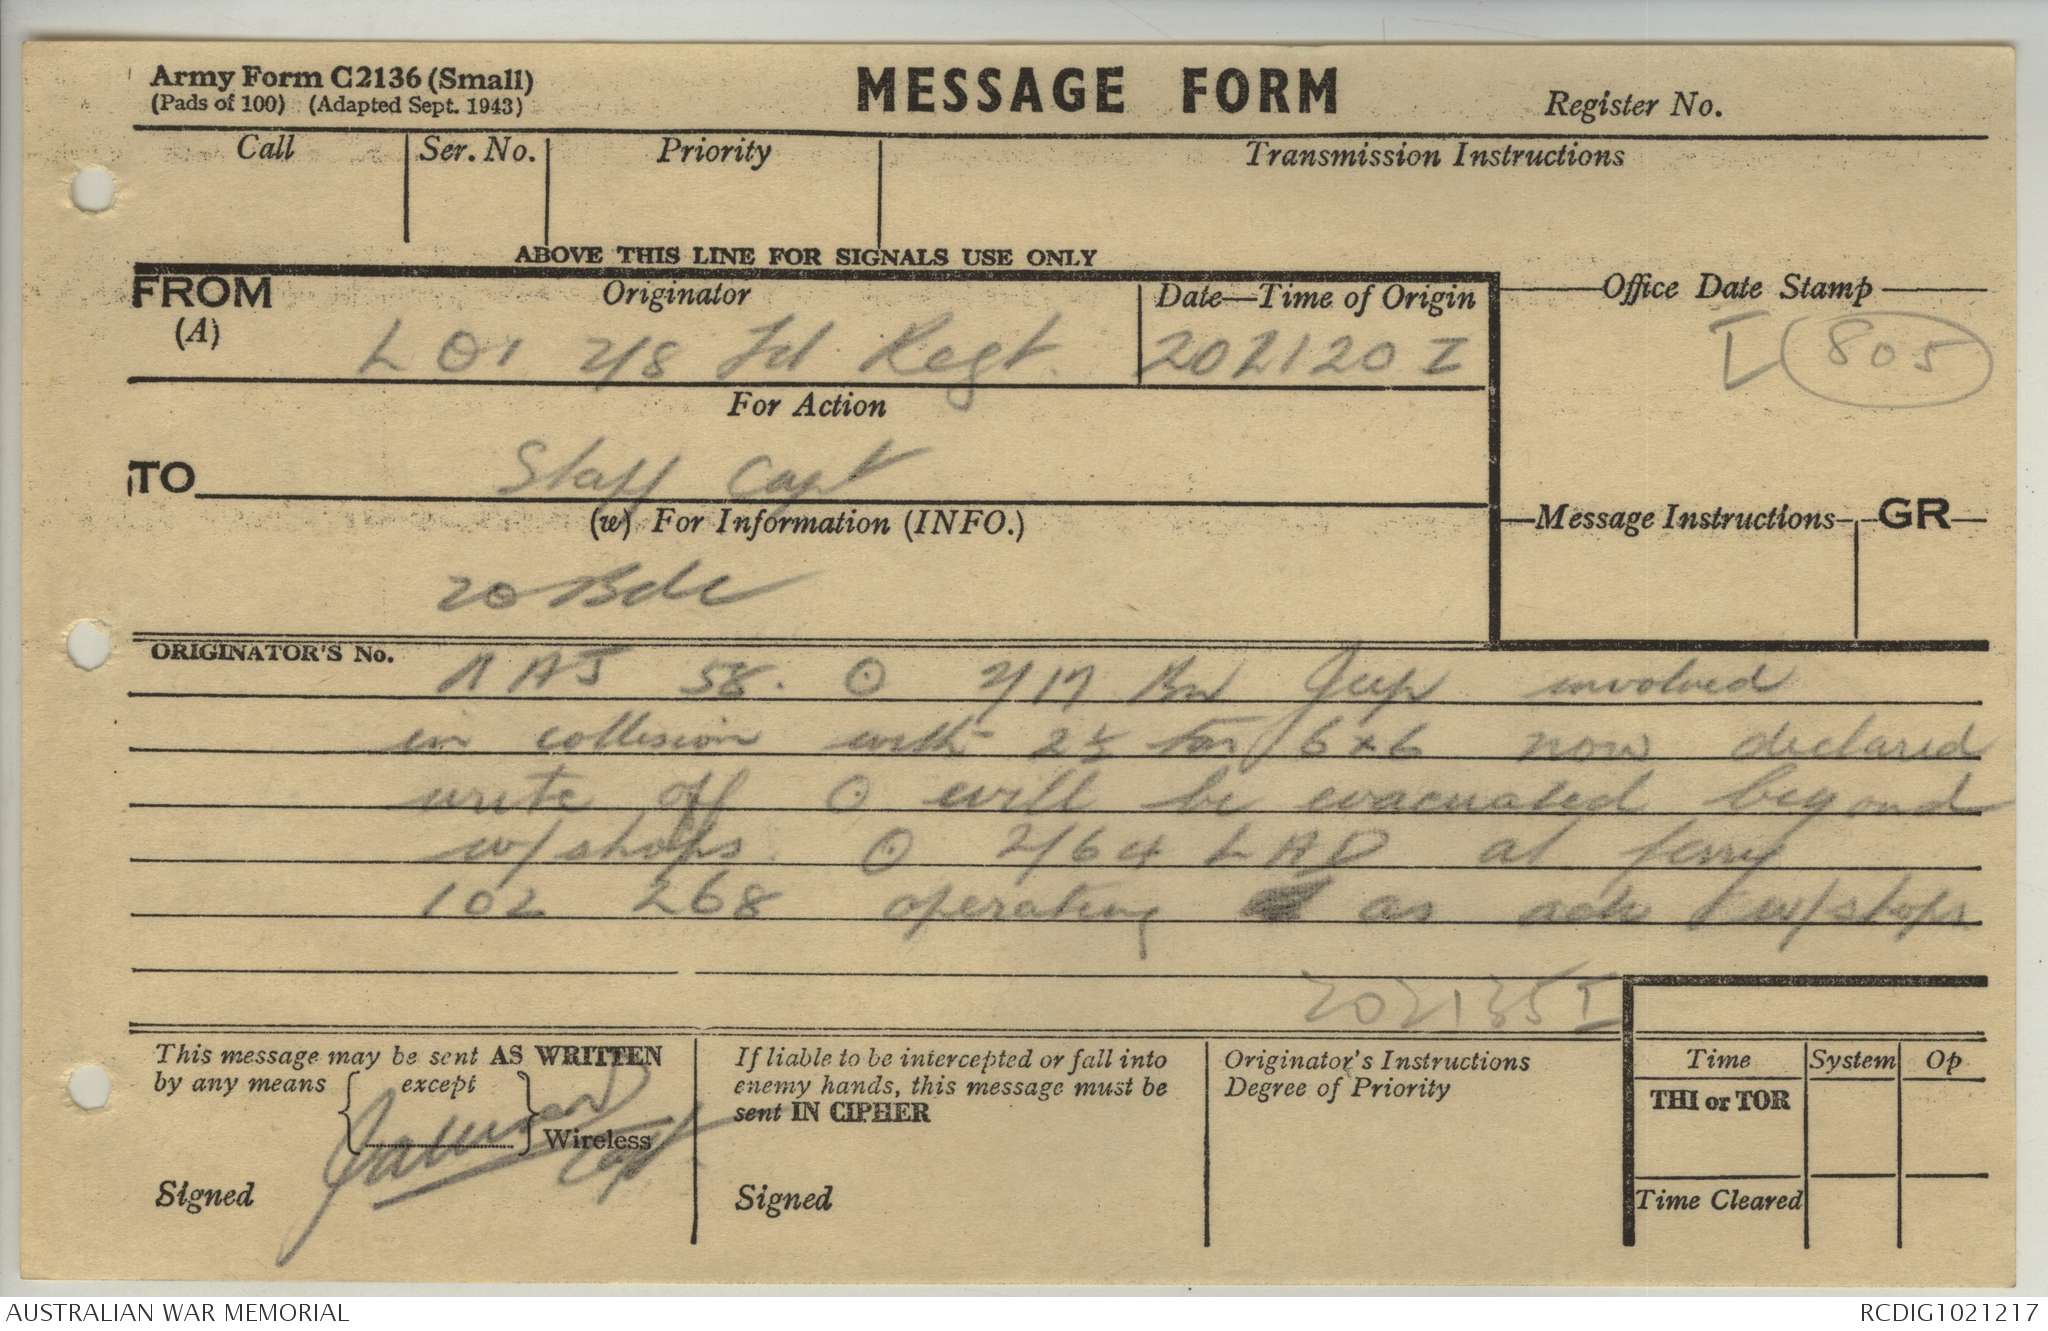 Army Form C2136 (Small)
(Pads of 100) (Adapted Sept. 1943)
MESSAGE FORM
Register No.
Call
Ser. No.
Priority
Transmission Instructions
ABOVE THIS LINE FOR SIGNALS USE ONLY
FROM
(A)
Originator
Date—Time of Origin
Office Date Stamp
L O 1 2/8 Fd Regt.
202120 I
I 805
For Action
TO
Staff Capt
(w) For Information (INFO.)
Message Instructions
GR
20 Bde
ORIGINATOR'S No.
58. O 2/17 Bn Jeep involved
in collision with 2½ ton 6x6 now declared
write off O will be evacuated beyond
w/shops. O 2/64 LAD at ferry
102 268 operating as adv w/shops
202135 I
This message may be sent AS WRITTEN
by any means { except } Wireless
Capt.
Signed
If liable to be intercepted or fall into
enemy hands, this message must be
sent IN CIPHER
Signed
Originator's Instructions
Degree of Priority
Time
System
Op
THI or TOR
Time Cleared
AUSTRALIAN WAR MEMORIAL
RCDIG1021217